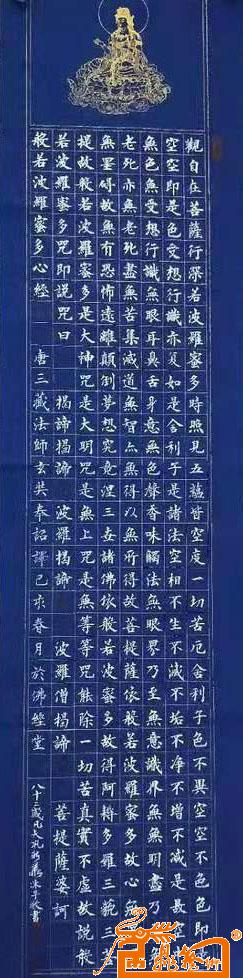 觀自在菩薩行深般若波羅蜜多時照見五蘊皆空度一切苦厄舍利子色不異空空不異色色即是
空空即是色受想行識亦復如是舍利子是諸法空相不生不滅不垢不淨不增不減是故空中
無色無受想行識無眼耳鼻舌身意無色聲香味觸法無眼界乃至無意識界無無明盡乃至
老死亦無老死盡無苦集滅道無智亦無得以無所得故菩提薩埵依般若波羅蜜多故心
無罣礙故無有恐怖遠離顛倒夢想究竟涅槃三世諸佛依般若波羅蜜多故得阿耨多羅三藐三菩
提故般若波羅蜜多是大神咒是大明咒是無上咒是無等等咒能除一切苦真實不虛故說般
若波羅蜜多咒即說咒曰 揭諦揭諦 波羅揭諦 波羅僧揭諦 菩提薩婆訶
般若波羅蜜多心經 唐三藏法師玄奘奉詔譯己亥春月於佛經堂
八十二歲